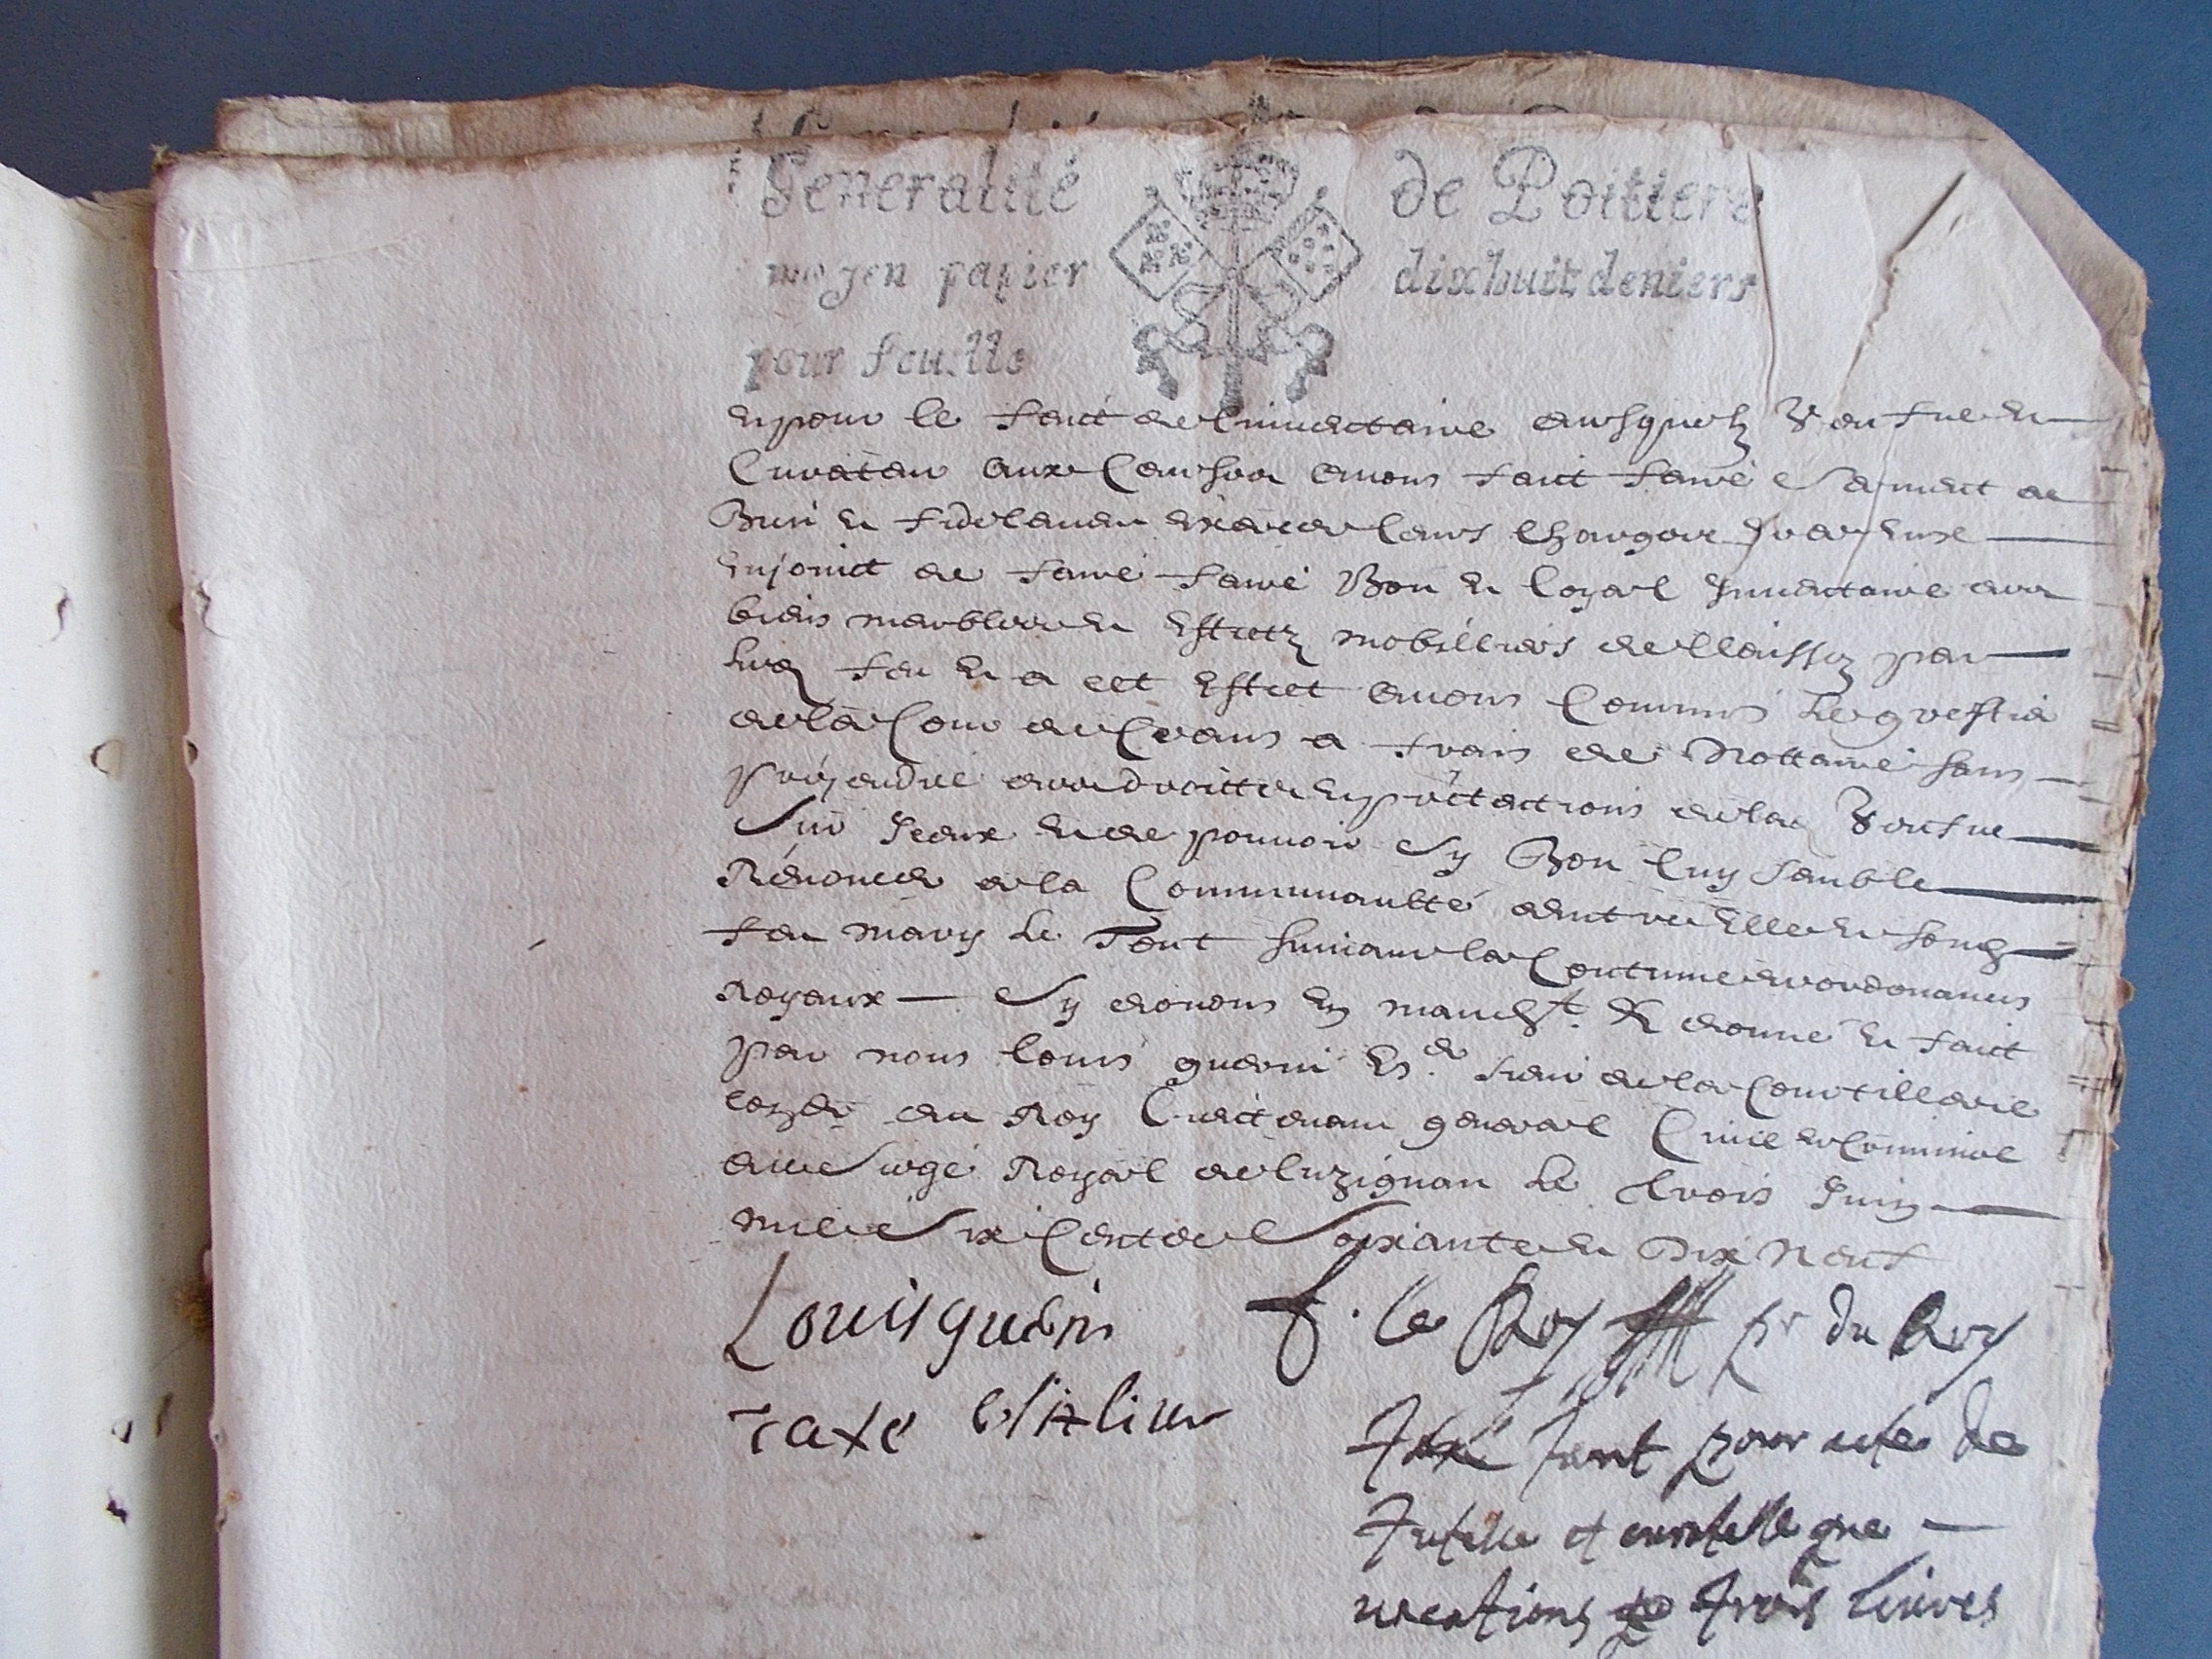 Generalité de Poitiers
moyen papier dixhuit deniers
pour feuille
et pour le faict de l'inventaire ausquelz veufve et
Curateur aux Causes avons faict faire serment de
Bien et fidelement exercer leurs charges
Enjoinct de faire faire Bon et loyal Inventaire des
biens meubles et Effectz mobilliers dellaissez par
feu et a cet Effect avons Commis le greffier
de la Cour de Ceans a frais de Nottaire sans
prejudice des droitz et pretentions de lad veufve
Sur Iceux et de pouvoir Sy Bon luy semble
Renoncer a la Communaulté d'entre Elle et sond
feu mary Le Tout suivant la Coutume et ordonances
Royaux — Sy donons en mandt. & donné et faict
par nous louis guerin Eser sieur de la Courtillerie
coner du Roy Lieutenant general Civil et Criminel
au Siege Royal de luzignan Le trois Juin
mille Six Cent Soixante et Dix Neuf
Louis guerin f. le Roy pr du Roy
Taxé livres
Taxé tant pour acte de
Tutelle et curatelle que
vacations trois livres